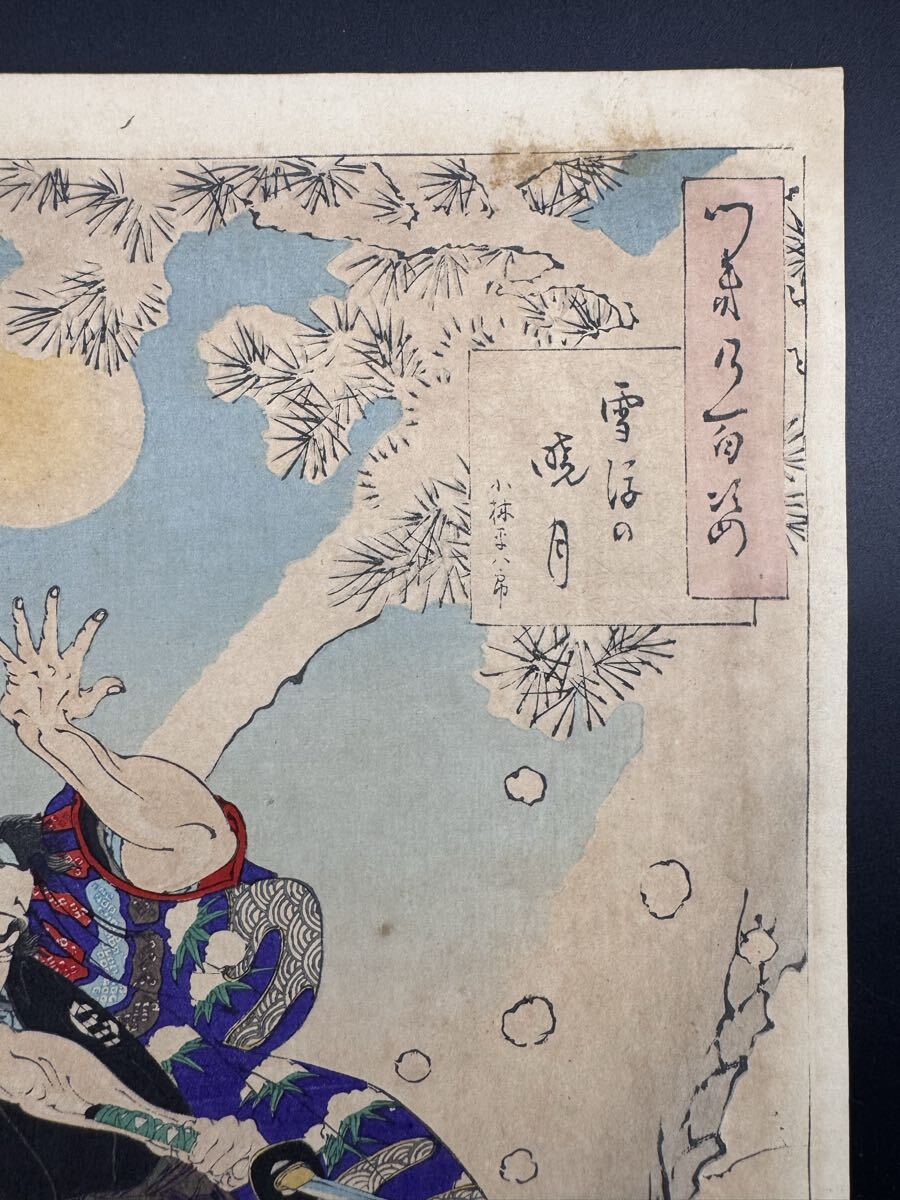 つき乃百姿
雪後の
暁月
小林平八郎